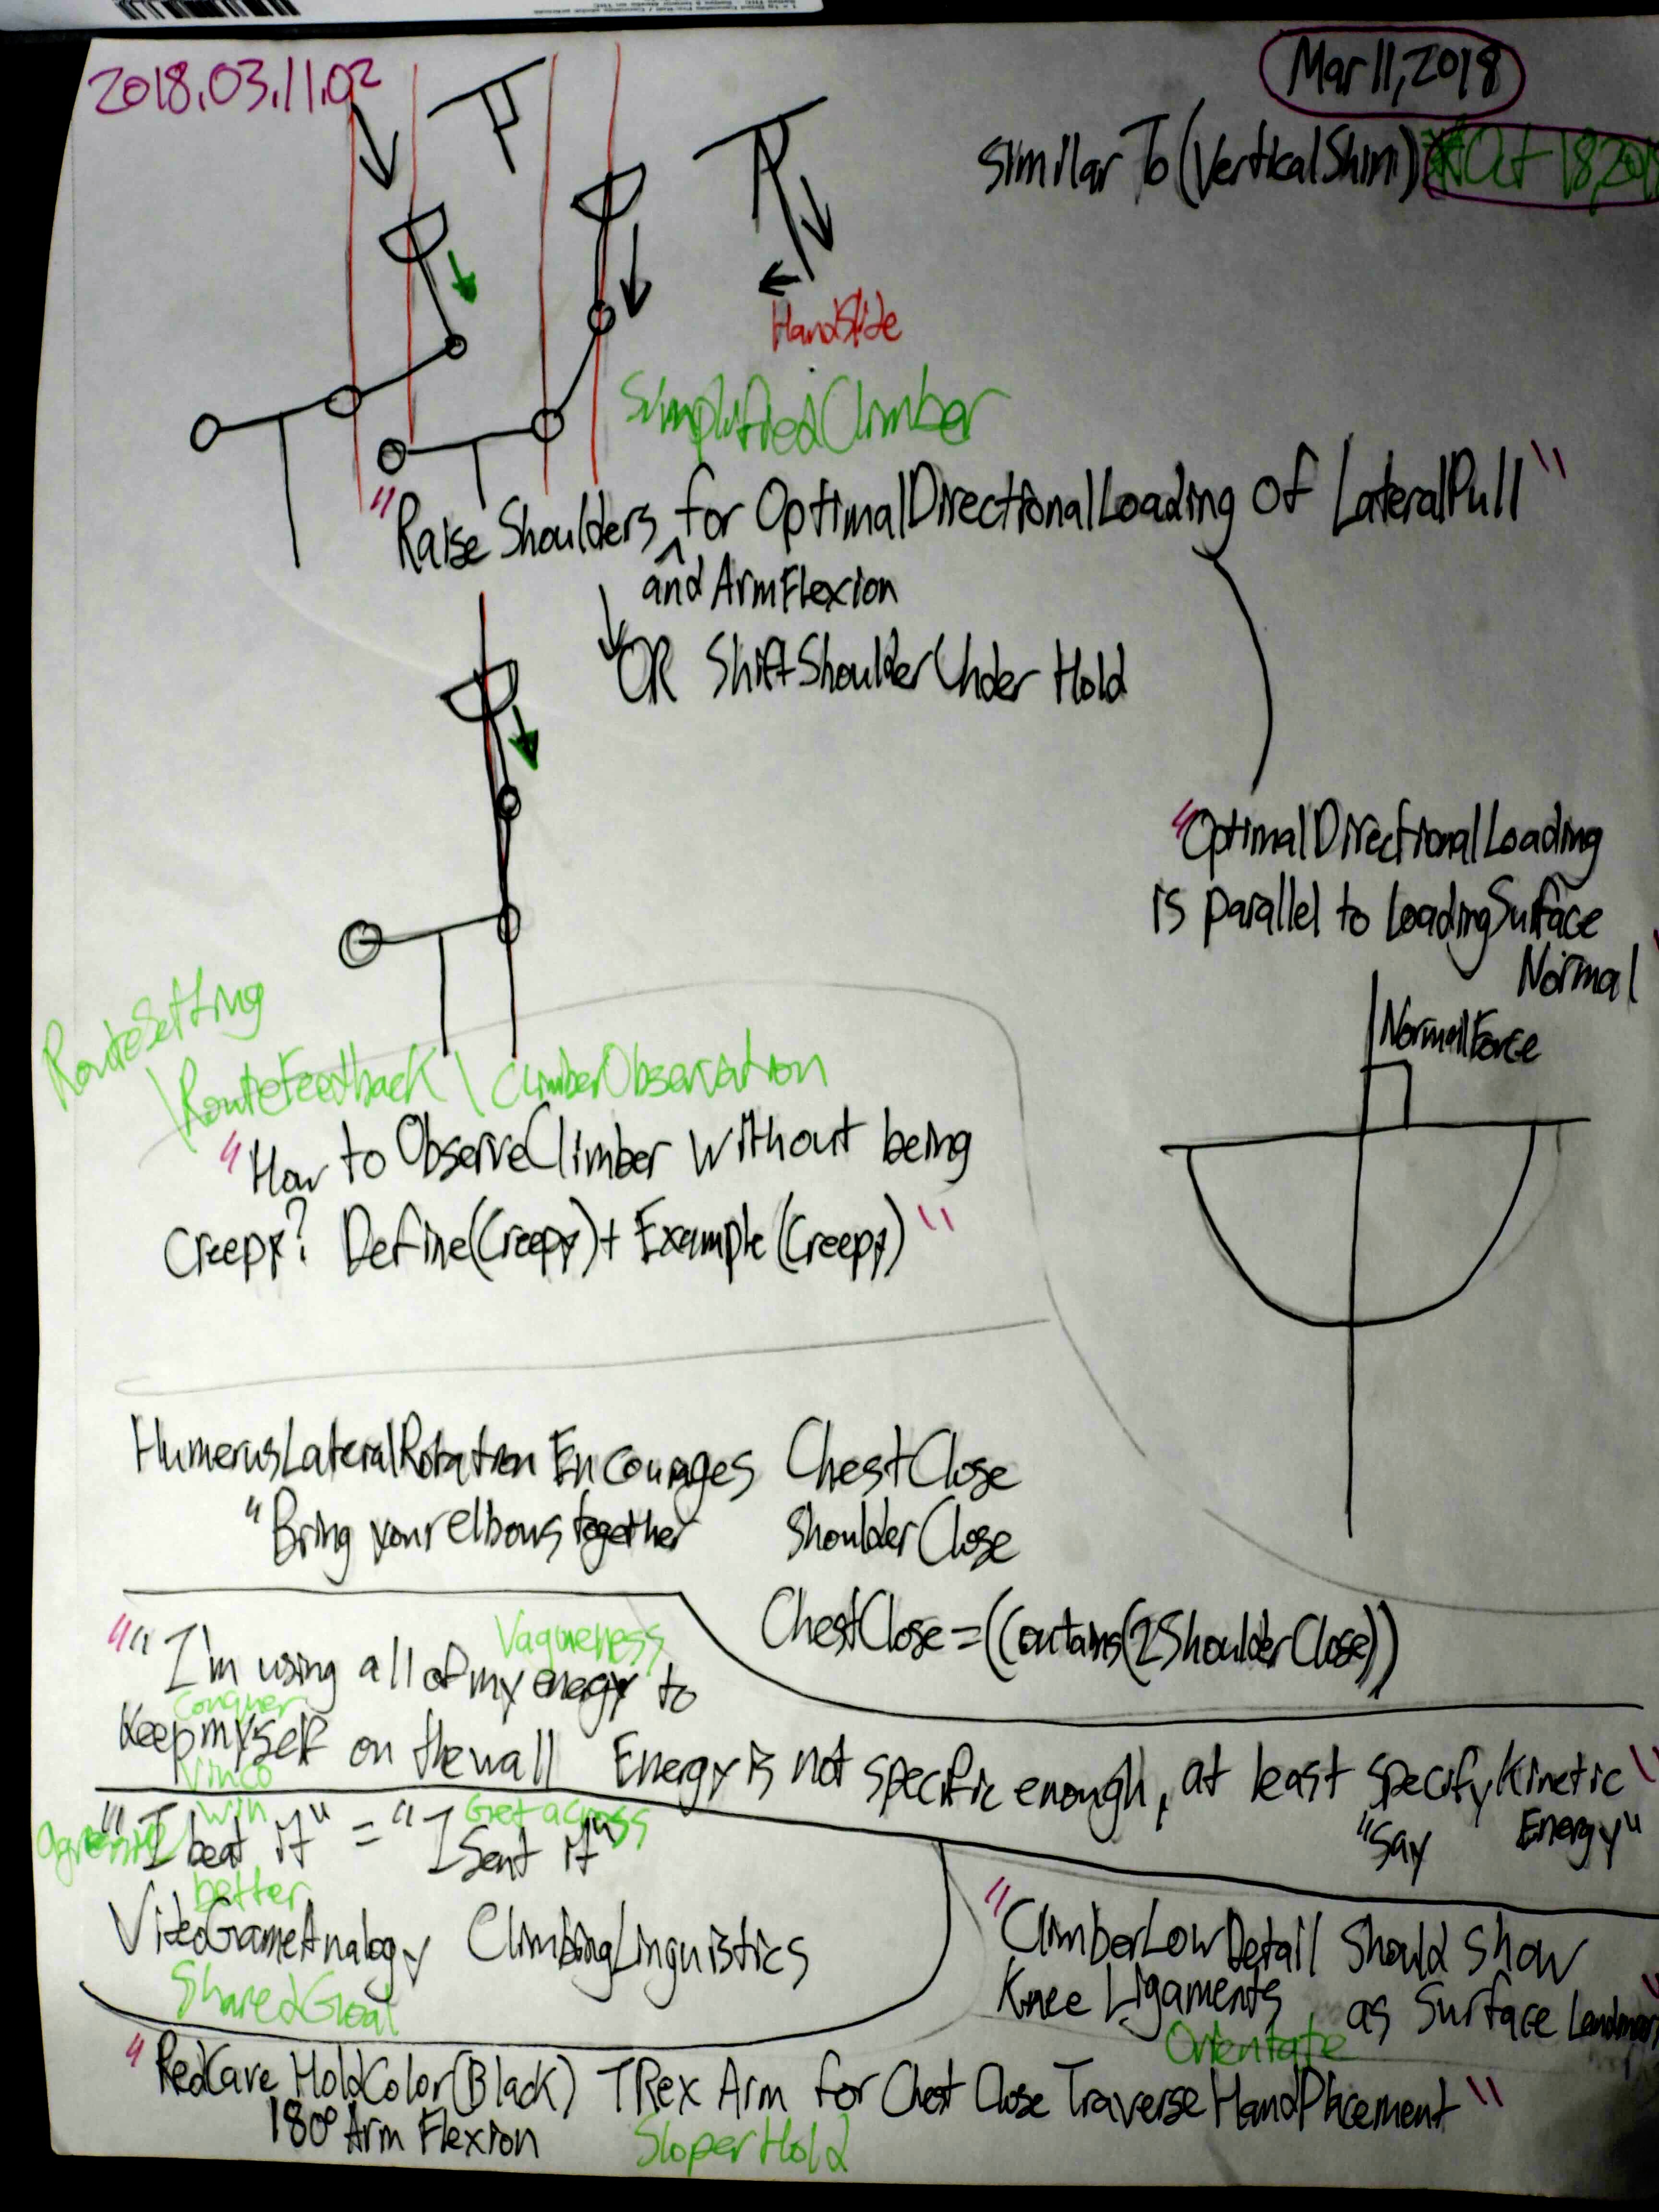 2018.03.11.02
Mar 11, 2018
Similar To (VerticalShim)
Oct 18, 201
HandSide
SimplifiedClimber
"Raise Shoulders for OptimalDirectionalLoading of LateralPull"
^ and ArmFlexion
OR ShiftShoulderUnder Hold
"OptimalDirectionalLoading
is parallel to LoadingSurface
Normal
NormalForce
RouteSetting
\RouteFeedback\ClimberObservation
"How to ObserveClimber without being
Creepy? Define(Creepy)+ Example(Creepy)"
HumerusLateralRotation Encourages ChestClose
"Bring your elbows together ShoulderClose
ChestClose=(Contains(2ShoulderClose))
Vagueness
""I'm using all of my energy to
Conquer
keep myself on the wall Energy is not specific enough, at least specify Kinetic"
"Say Energy"
Vinco
Win Get across
""I beat it" = "I Sent it"
better
VideoGameAnalogy ClimbingLinguistics
SharedGoal
"ClimberLowDetail Should show
Knee Ligaments as Surface
Orientate
"RedCave HoldColor(Black) TRex Arm for Chest Close Traverse HandPlacement"
180° Arm Flexion
SloperHold